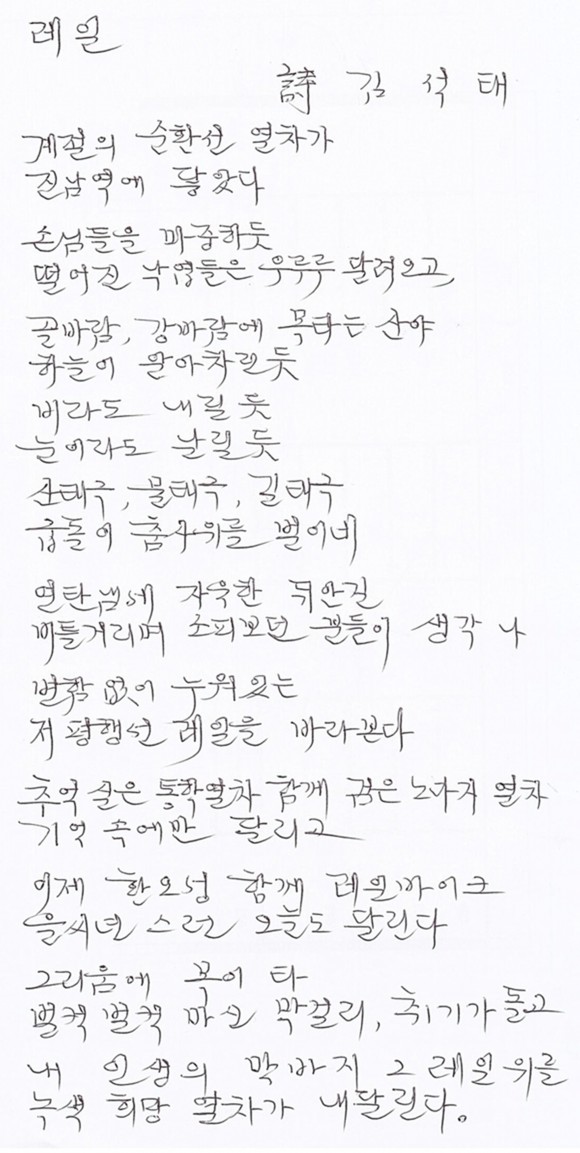 레일
詩 김석태
계절의 순환선 열차가
진남역에 닿았다
손님들을 마중하듯
떨어진 낙엽들은 우루루 달려오고,
골바람, 강바람에 목타는 산야
하늘이 알아차린듯
비라도 내릴 듯
눈이라도 날릴 듯
산태극, 물태극, 길태극
굽돌이 춤사위를 벌이네
연탄냄새 자욱한 뒤안길
비틀거리며 소피보던 분들이 생각 나
변함 없이 누워있는
저 평행선 레일을 바라본다
추억 실은 통학열차 함께 꿈은 노마지 열차
기억 속에만 달리고
이제 환호성 함께 레일바이크
을씨년 스런 오늘도 달린다
그리움에 목이 타
벌컥 벌컥 마신 막걸리, 취기가 돌고
내 인생의 막바지 그 레일 위를
녹색 희망 열차가 내달린다.